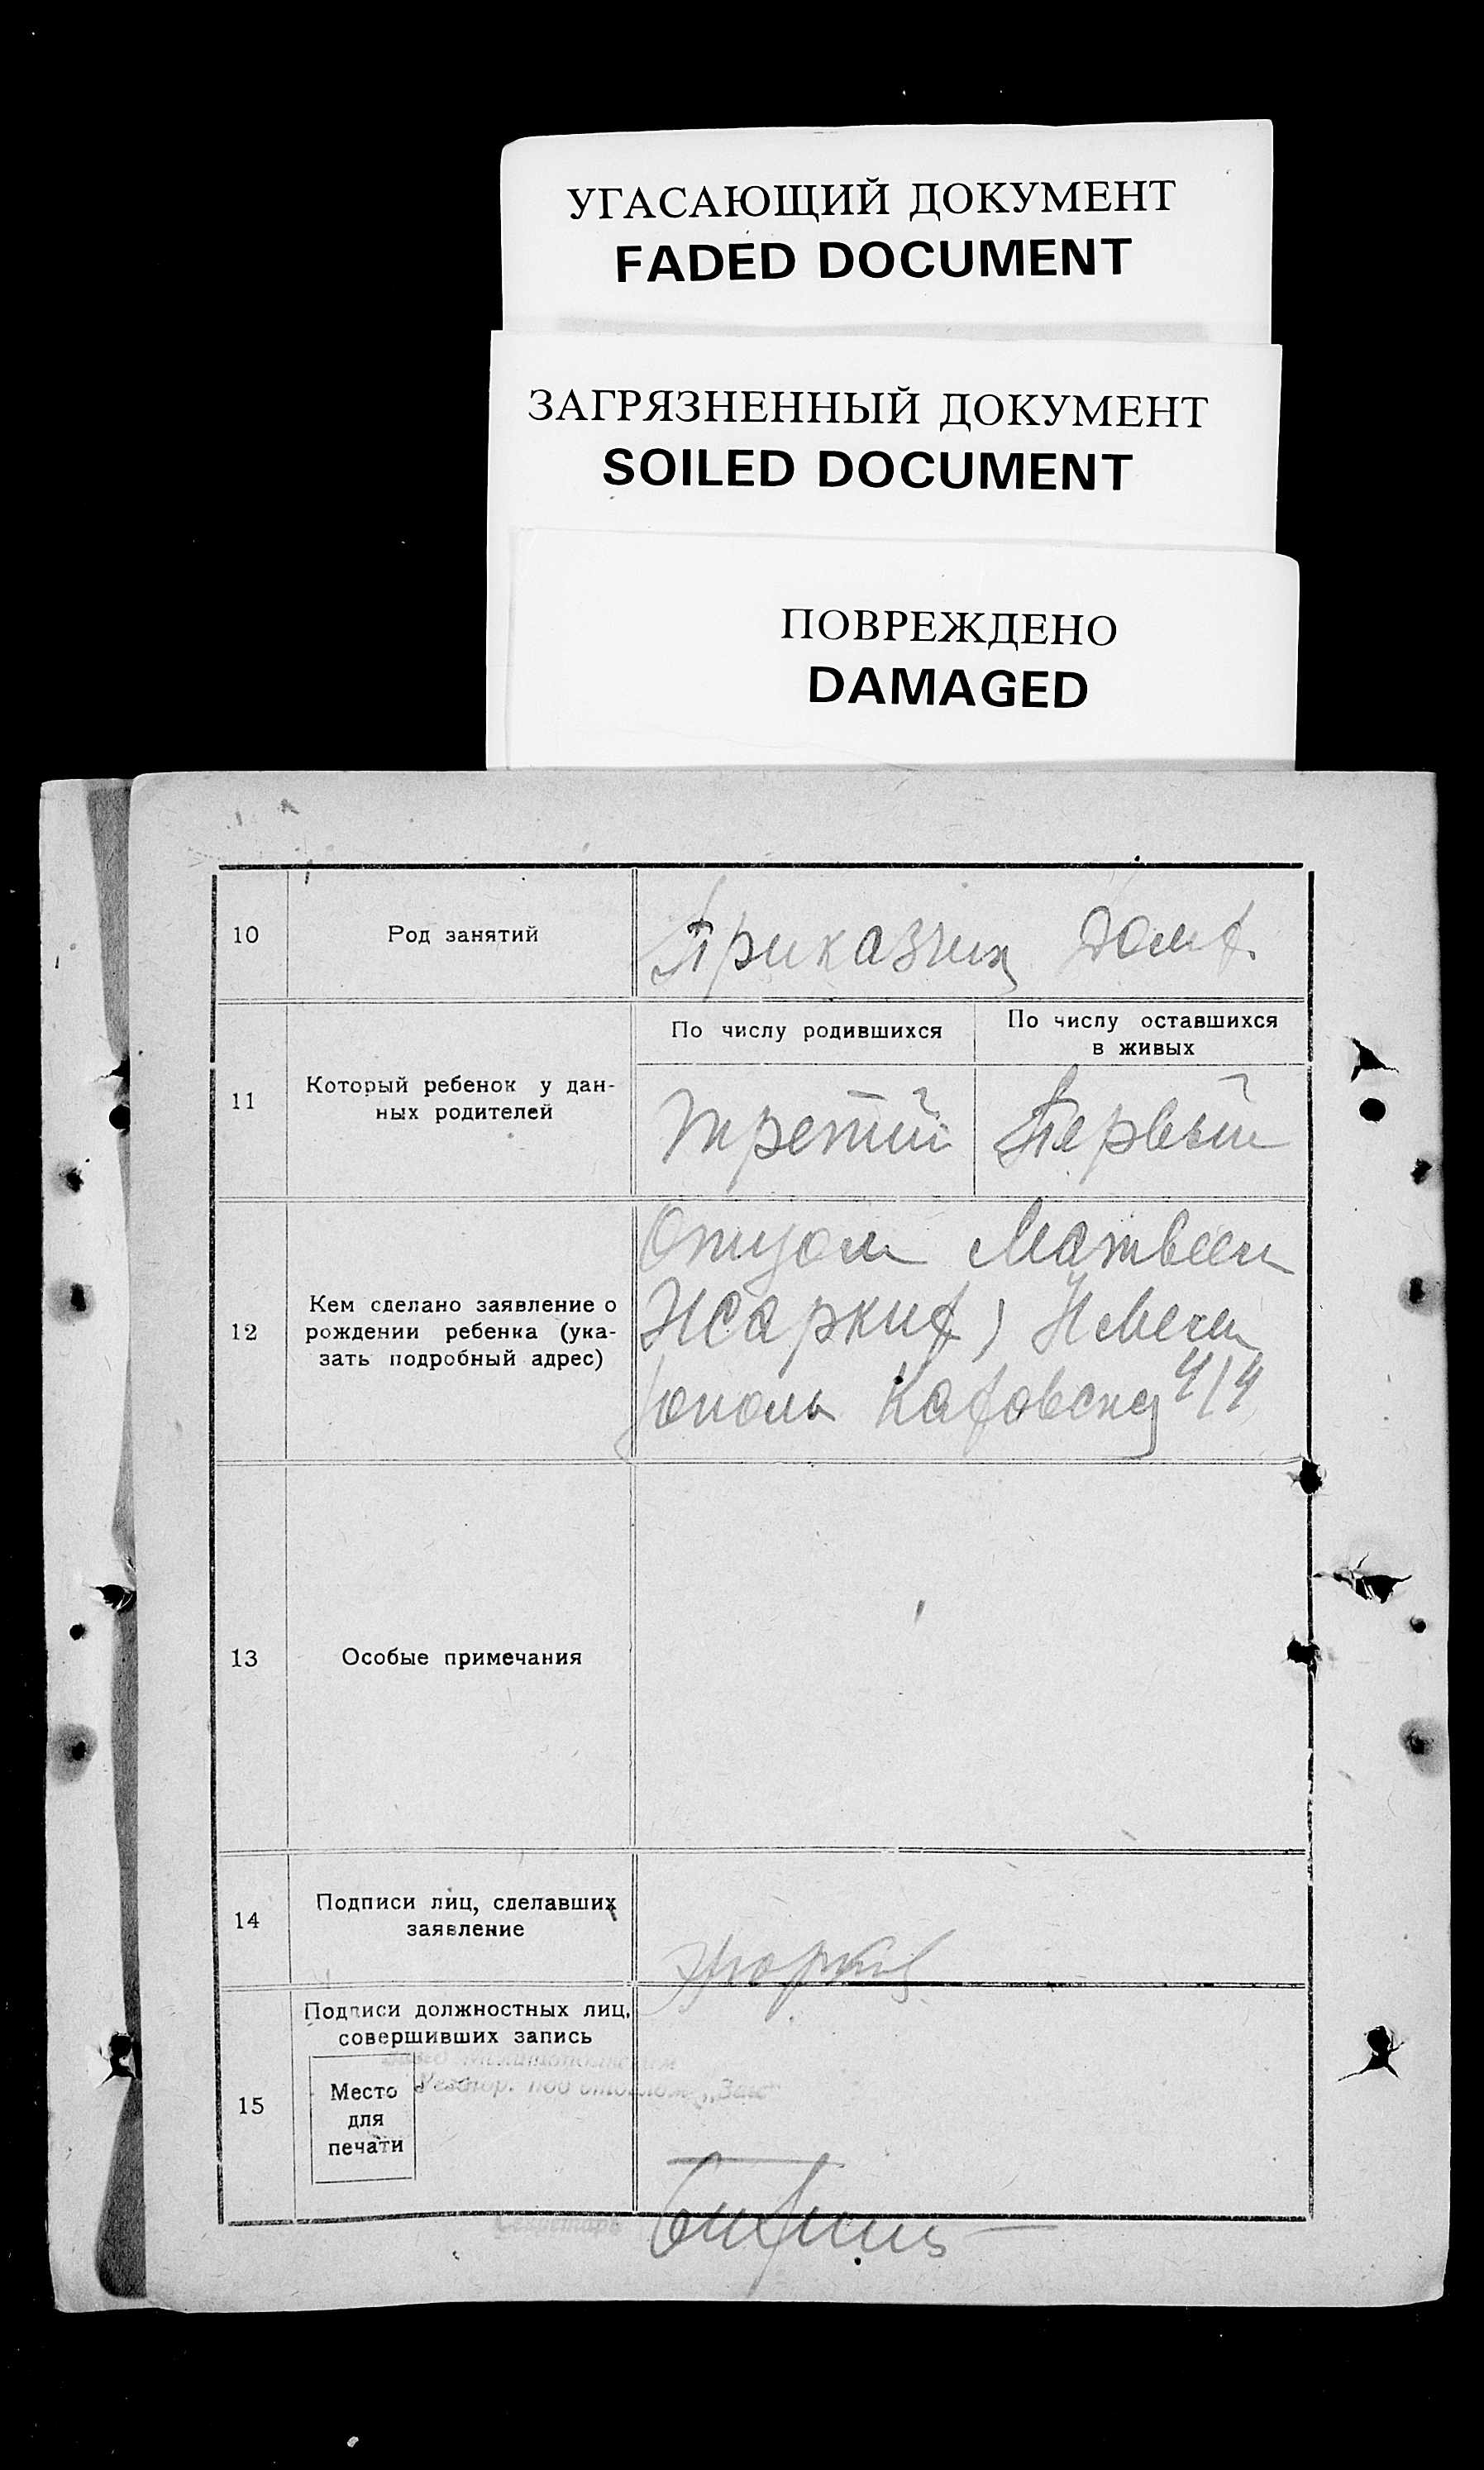 УГАСАЮЩИЙ ДОКУМЕНТ
FADED DOCUMENT
ЗАГРЯЗНЕННЫЙ ДОКУМЕНТ
SOILED DOCUMENT
ПОВРЕЖДЕНО
DAMAGED
10
Род занятий
Приказчик
11
Который ребенок у дан-
ных родителей
По числу родившихся
По числу оставшихся
в живых
третий
Первый
12
Кем сделано заявление о
рождении ребенка (ука-
зать подробный адрес)
Отцом Матвеем
13
Особые примечания
14
Подписи лиц, сделавших
заявление
15
Подписи должностных лиц,
совершивших запись
Место
для
печати
Секретарь